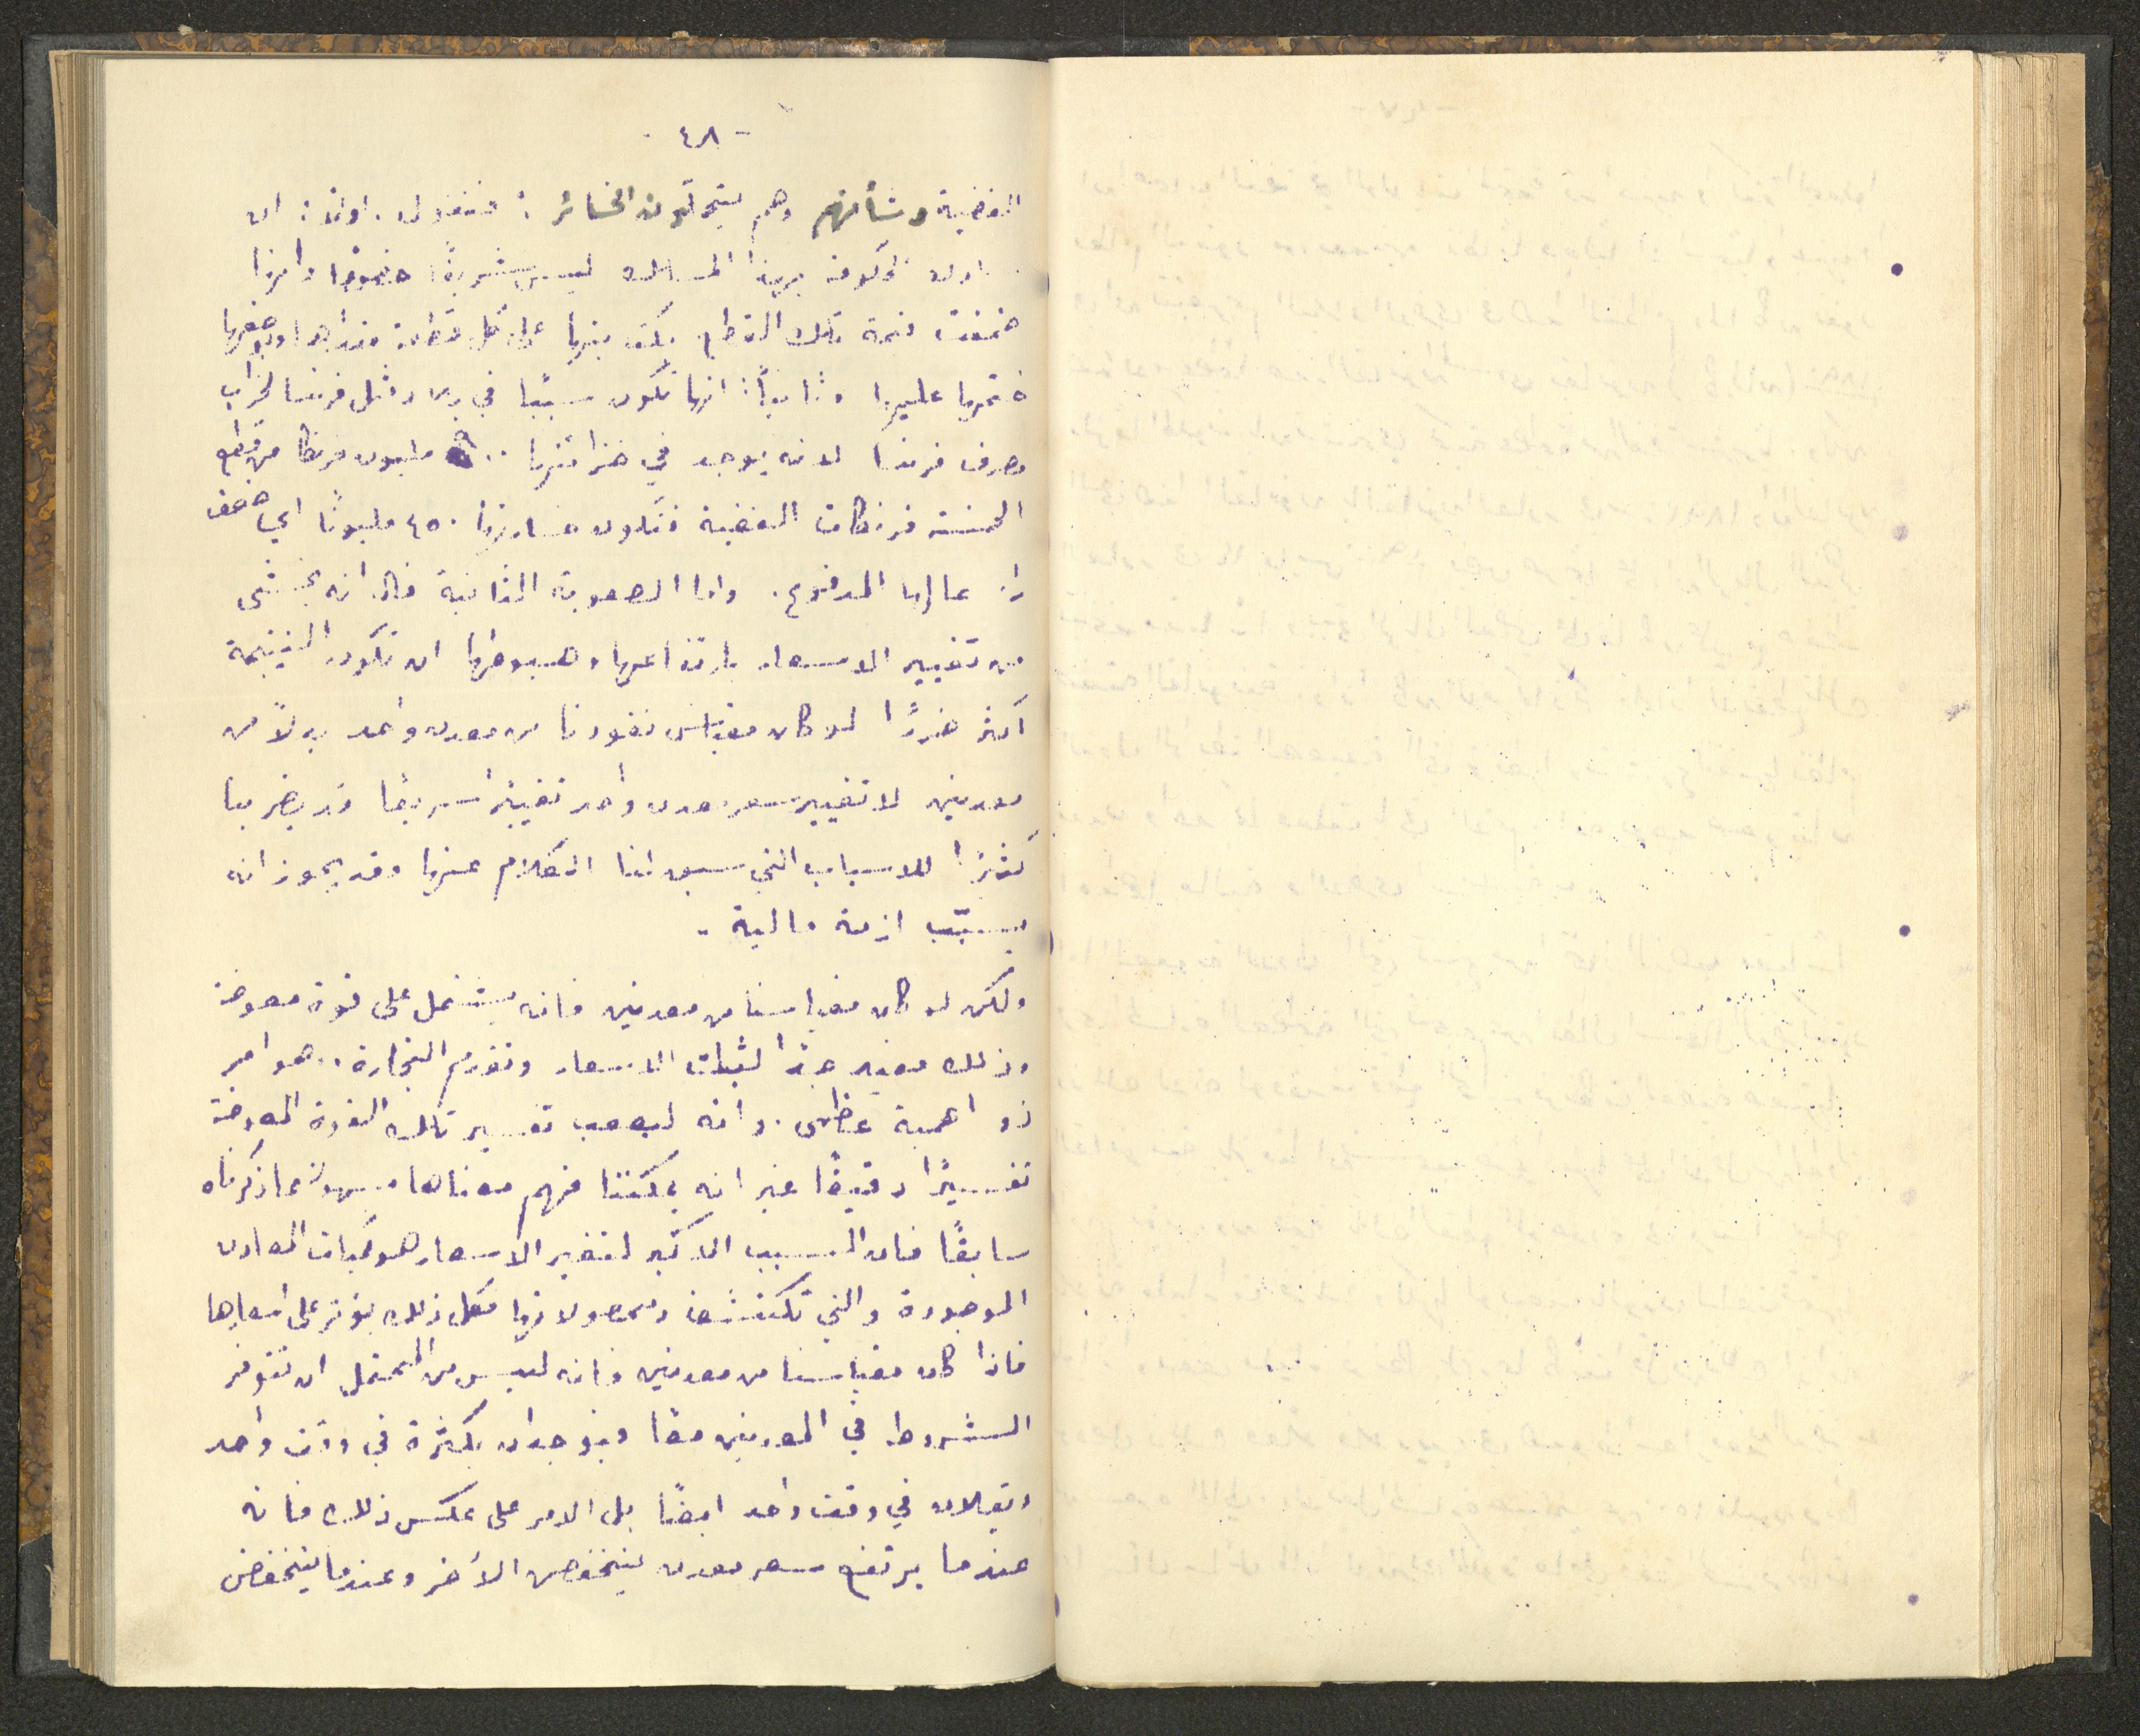 - ٤٨ -
الفضية وشأنهم وهم يتحملون الخسائر : فنقول . اولاً : ان
الحكومة بهذا المسلك ليس شريفًا خصوصًا وانها
ضمنت قيمة تلك القطع بكتابتها على كل قطعة مقدارها ووضعها
ختمها عليها وثانيًا : انها تكون سببًا في خراب
مصرف فرنسا لانه يوجد في خزائنها مليون فرنكا من قطع
الخمسة فرنكات الفضية فتكون خسارتها ٤٥٠ مليونًا اي ضعف
راس مالها المدفوع . واما الصعوبة الثانية فهي انه يخشى
من تغيير الاسعار بارتفاعها وهبوطها ان تكون النتيجة
اكثر ضررًا لو كان مقياس نقودنا من معدن واحد بدلاً من
معدنين لان تغيير سعر معدن واحد تغييرًا سريعًا قد يضر بنا
كثيرًا للاسباب التي سبق لنا الكلام عنها وقد يجوز انه
يسبّب ازمة مالية .
ولكن لو كان مقياسنا من معدنين فانه يشتمل على قوة معوضة
وذلك مفيد جدًا لثبات الاسعار وتقدم التجارة . وهو امر
ذو اهمية عظمى . وانه ليصعب تفسير تلك القوة المعوضة
تفسيرًا دقيقًا غير انه يمكننا فهم معناها بسهولة مما ذكرناه
سابقًا فان السبب الاكبر لتغيير الاسعار هو كميات المعادن
الموجودة والتي تكتشف ومحصولاتها فكل ذلك يؤثر على اسعارها
فاذا كان مقياسنا من معدنين فانه ليس من المحتمل ان تتوفر
الشروط في المعدنين معًا فيوجدان بكثرة في وقت واحد
ويقلان في وقت واحد ايضًا بل الامر على عكس ذلك فانه
عندما يرتفع سعر معدن ينخفض الآخر وعندما ينخفض